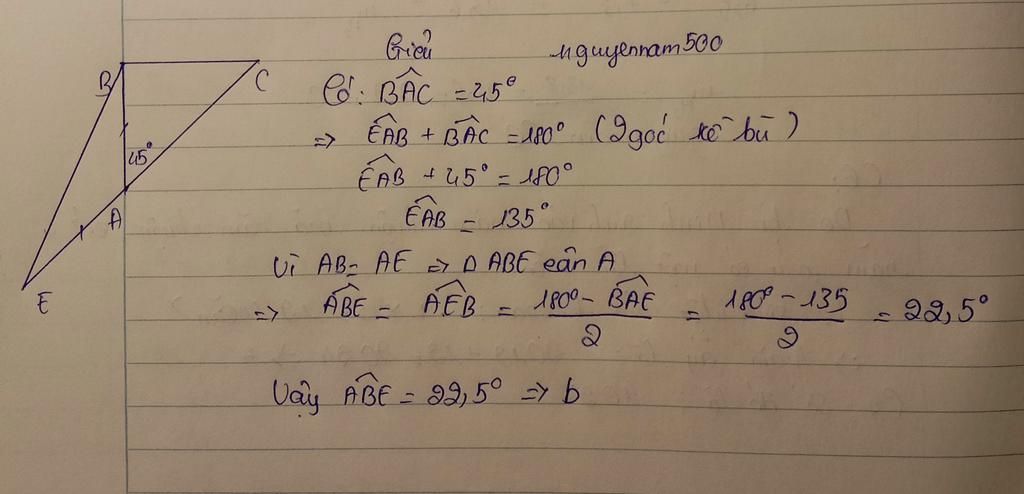 Giải nguyennam500
Có: \widehat{BAC} = 45°
=> \widehat{EAB} + \widehat{BAC} = 180° (2 góc kề bù)
\widehat{EAB} + 45° = 180°
\widehat{EAB} = 135°
Vì AB = AE => Δ ABE cân A
=> \widehat{ABE} = \widehat{AEB} = \frac{180° - \widehat{BAE}}{2} = \frac{180° - 135}{2} = 22,5°
Vậy \widehat{ABE} = 22,5° => b
B
C
45°
A
E